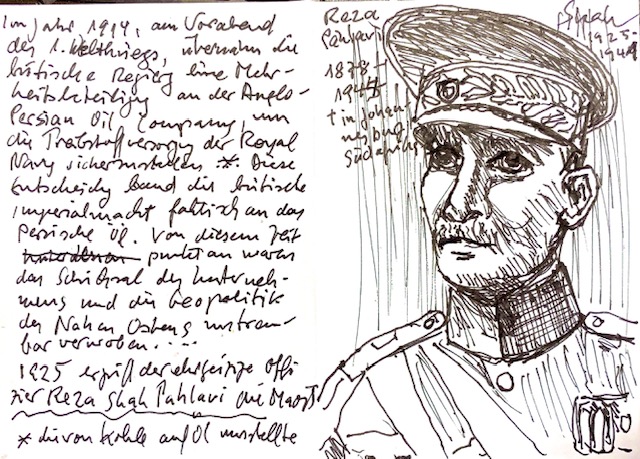 Im Jahr 1914, am Vorabend
des 1. Weltkriegs, übernahm die
britische Regierg eine Mehr-
heitsbeteiligung an der Anglo-
Persian Oil Company, um
die Treibstoffversorgg der Royal
Navy sicherzustellen *. Diese
Entscheidg band die britische
Imperialmacht faktisch an das
persische Öl. Von diesem Zeit
punkt an waren
das Schicksal des Unterneh-
mens und die Geopolitik
des Nahen Ostens untrenn-
bar verwoben....
1925 ergriff der ehrgeizige Offi
zier Reza Shah Pahlavi die Macht
* die von Kohle auf Öl umstellte
Reza
Pahlavi
1878-
1944
† in Johan
nesburg
Südafrika
1925-